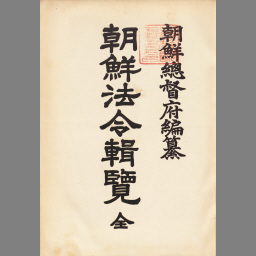 朝鮮總督府編纂
朝鮮法令輯覽 全